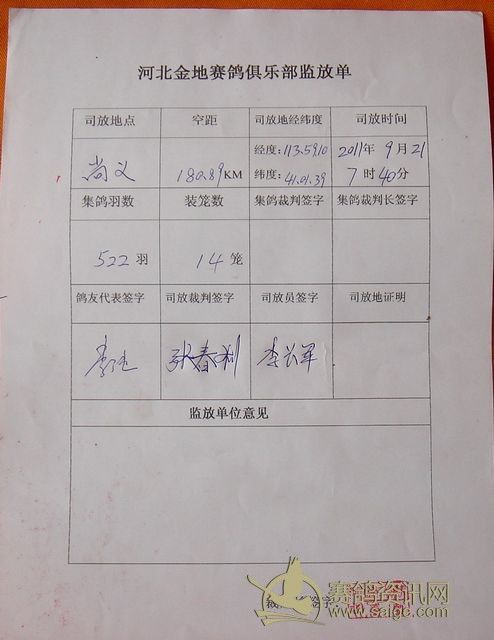 河北金地赛鸽俱乐部监放单
司放地点 空距 司放地经纬度 司放时间
尚义 180.89KM 经度:113.59.10 纬度:41.01.39 2011年9月21 7时40分
集鸽羽数 装笼数 集鸽裁判签字 集鸽裁判长签字
522羽 14笼
鸽友代表签字 司放裁判签字 司放员签字 司放地证明
张春利 李兴军
监放单位意见
签字
赛鸽资讯网
www.saige.com